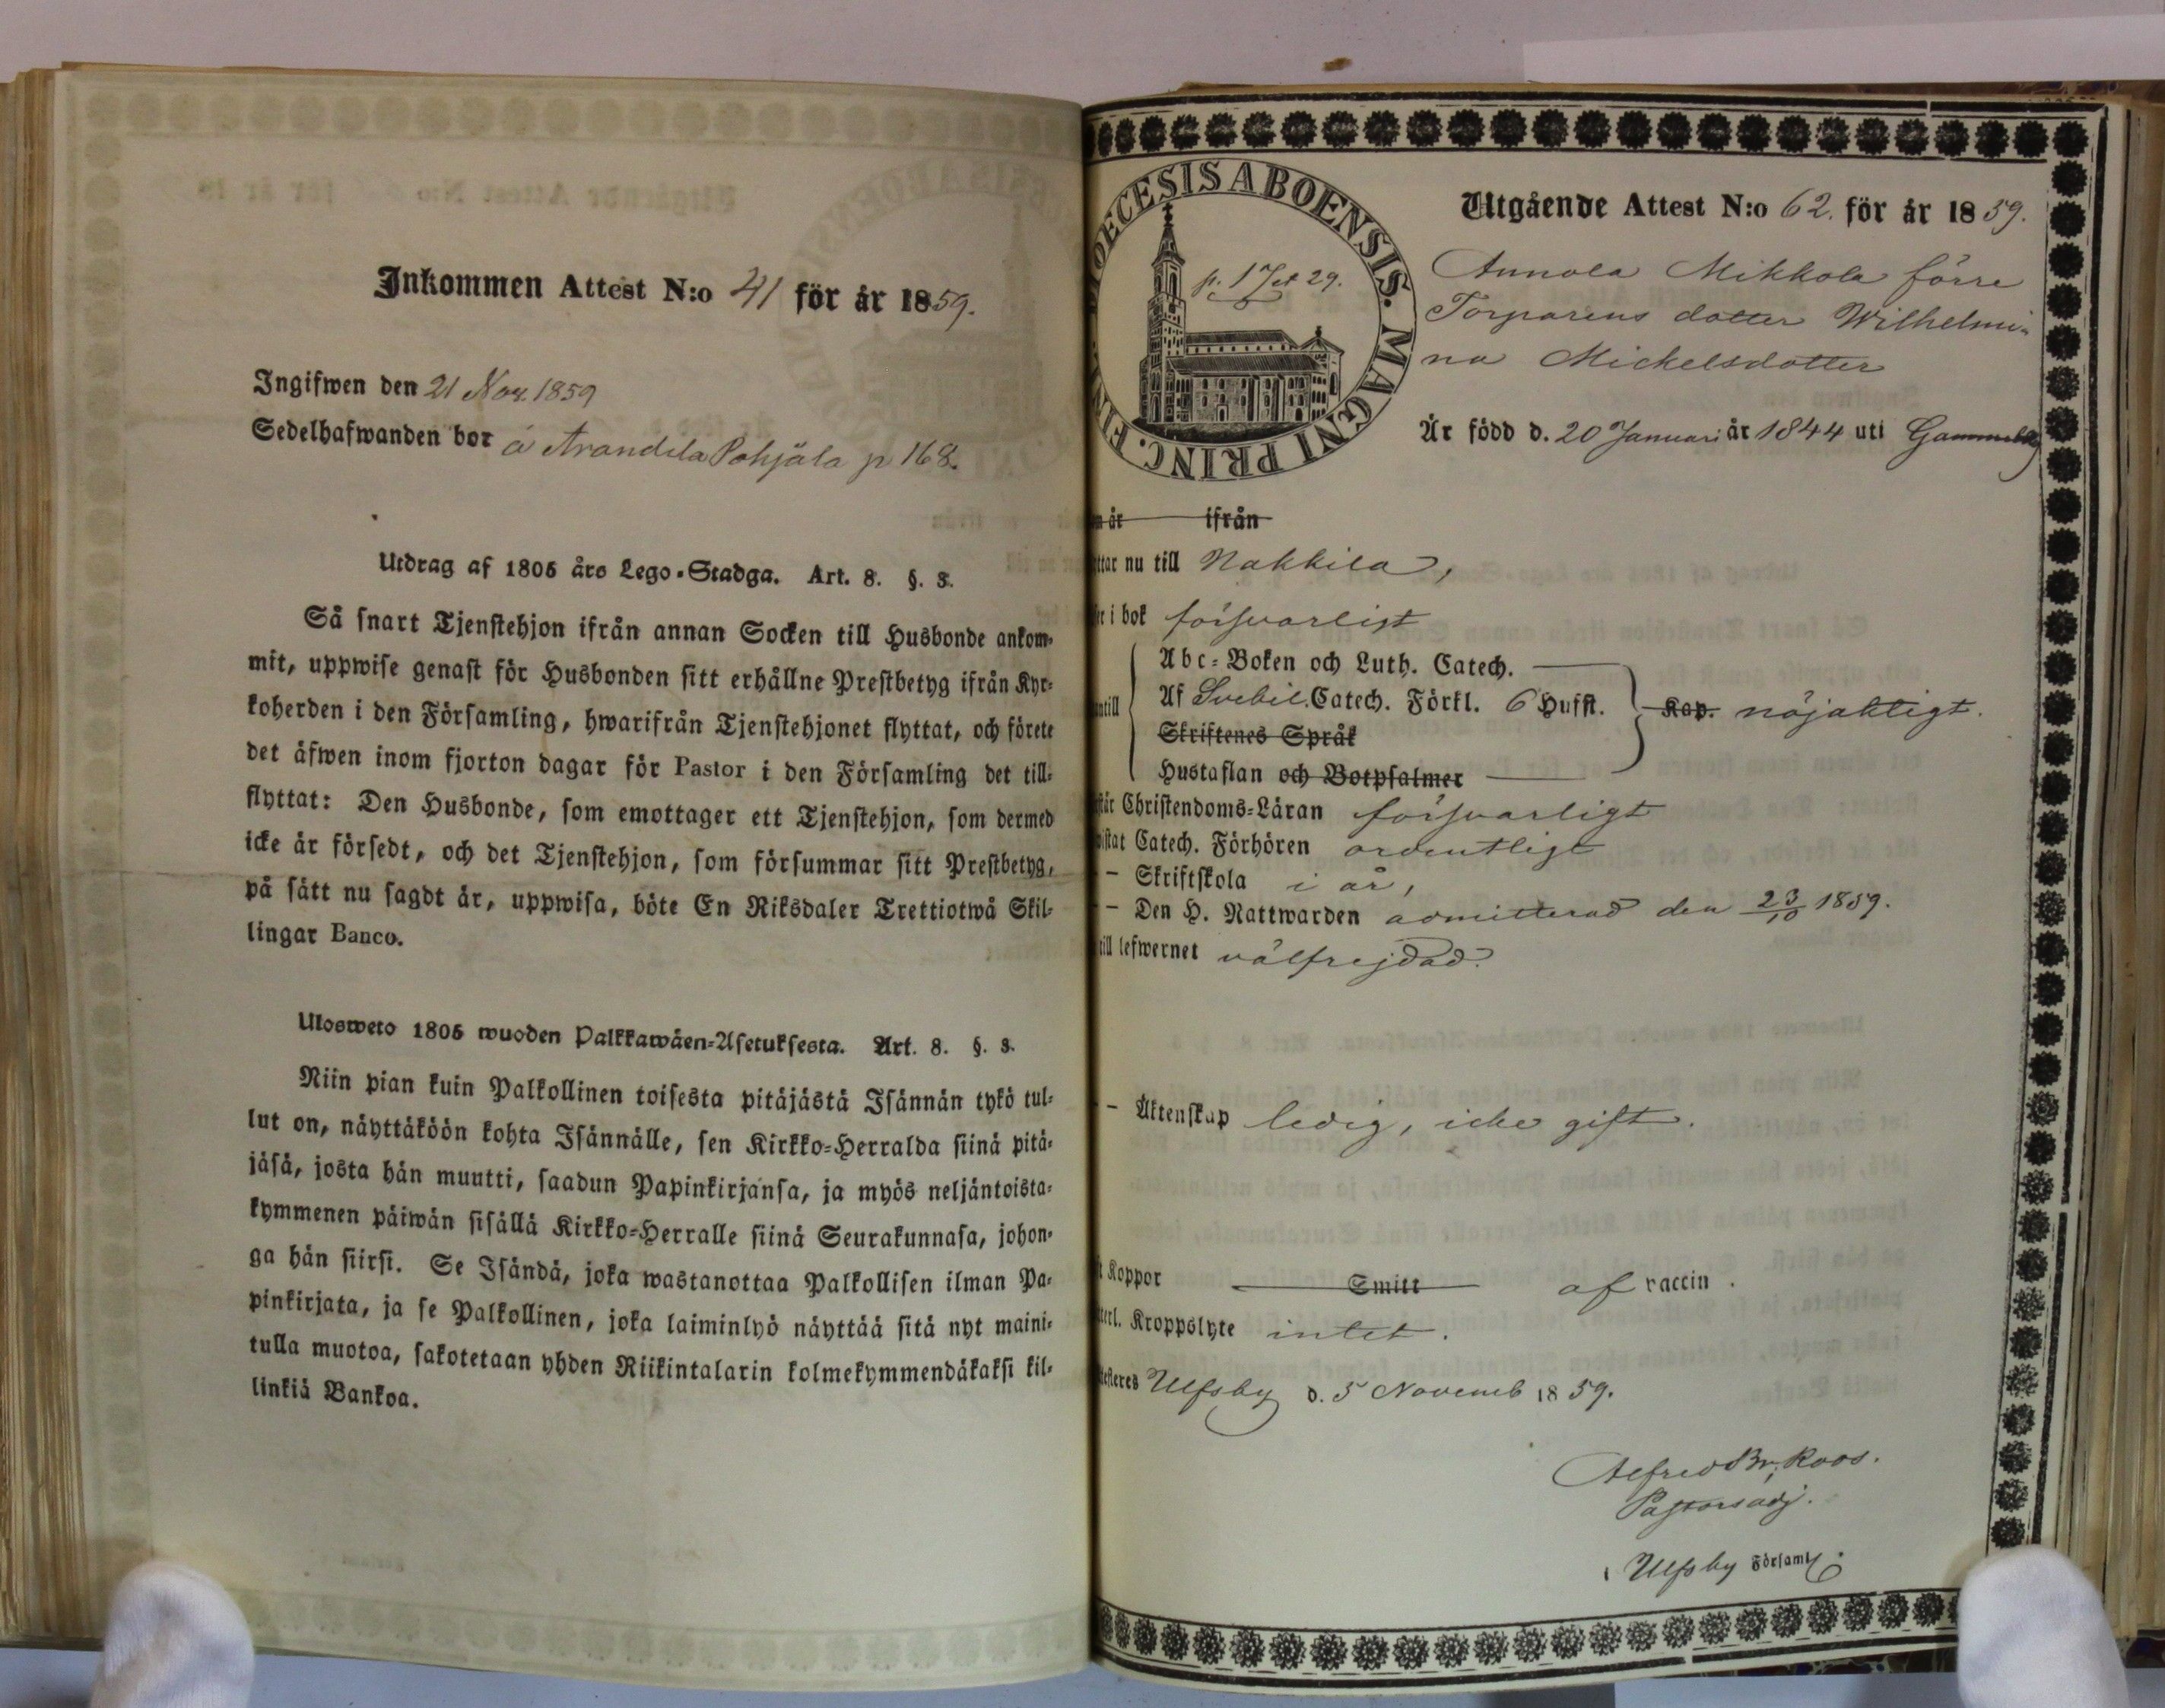 Inkommen Attest N:o 41 för år 1859.
Ingifwen den 21 Nov. 1859
Sedelhafwanden bor å Arandila Pohjala p 168.
Utdrag af 1805 års Lego-Stadga. Art. 8. §. 3.
Så snart Tjenstehjon ifrån annan Socken till Husbonde ankom-
mit, uppwise genast för Husbonden sitt erhållne Prestbetyg ifrån Kyr-
koherden i den Församling, hwarifrån Tjenstehjonet flyttat, och förete
det äfwen inom fjorton dagar för Pastor i den Församling det till-
flyttat: Den Husbonde, som emottager ett Tjenstehjon, som dermed
icke är försedt, och det Tjenstehjon, som försummar sitt Prestbetyg,
på sätt nu sagdt är, uppwisa, böte En Riksdaler Trettiotwå Skil-
lingar Banco.
Ulosweto 1805 wuoden Palkkawäen-Asetuksesta. Art. 8. §. 3.
Niin pian kuin Palkollinen toisesta pitäjästä Isännän tykö tul-
lut on, näyttäköön kohta Isännälle, sen Kirkko-Herralda siinä pitä-
jäsä, josta hän muutti, saadun Papinkirjansa, ja myös neljäntoista-
kymmenen päiwän sisällä Kirkko-Herralle siinä Seurakunnasa, johon-
ga hän siirsi. Se Isändä, joka wastanottaa Palkollisen ilman Pa-
pinkirjata, ja se Palkollinen, joka laiminlyö näyttää sitä nyt maini-
tulla muotoa, sakotetaan yhden Riikintalarin kolmekymmendäkaksi kil-
linkiä Bankoa.
DIOECESIS ABOENSIS. MAGNI PRINC. FIN
p. 1 Jet 29.
Utgående Attest N:o 62. för år 1859.
Annola Mikkola förre
Torparens dotter Wilhelmi-
na Mickelsdotter
Är född d. 20 Januari år 1844 uti Gammelby
år ifrån
ttar nu till Nakkila,
i bok försvarligt
Abc-Boken och Luth. Catech.
ntill Af Svebil. Catech. Förkl. 6 Hufst. Kap. nöjaktigt.
Skriftenes Språk
Hustaflan och Botpsalmer
står Christendoms-Läran försvarligt
istat Catech. Förhören ordentligt
- Skriftskola i år,
- Den H. Nattwarden admitterad den 23/10 1859.
till lefwernet välfrejdad.
- Äktenskap ledig, icke gift.
t Koppor Smitt af vaccin.
terl. Kroppslyte intet.
testeres Ulfsby d. 5 Novemb 1859.
Alfred Br. Roos.
Pastorsadj.
Ulfsby Församl.